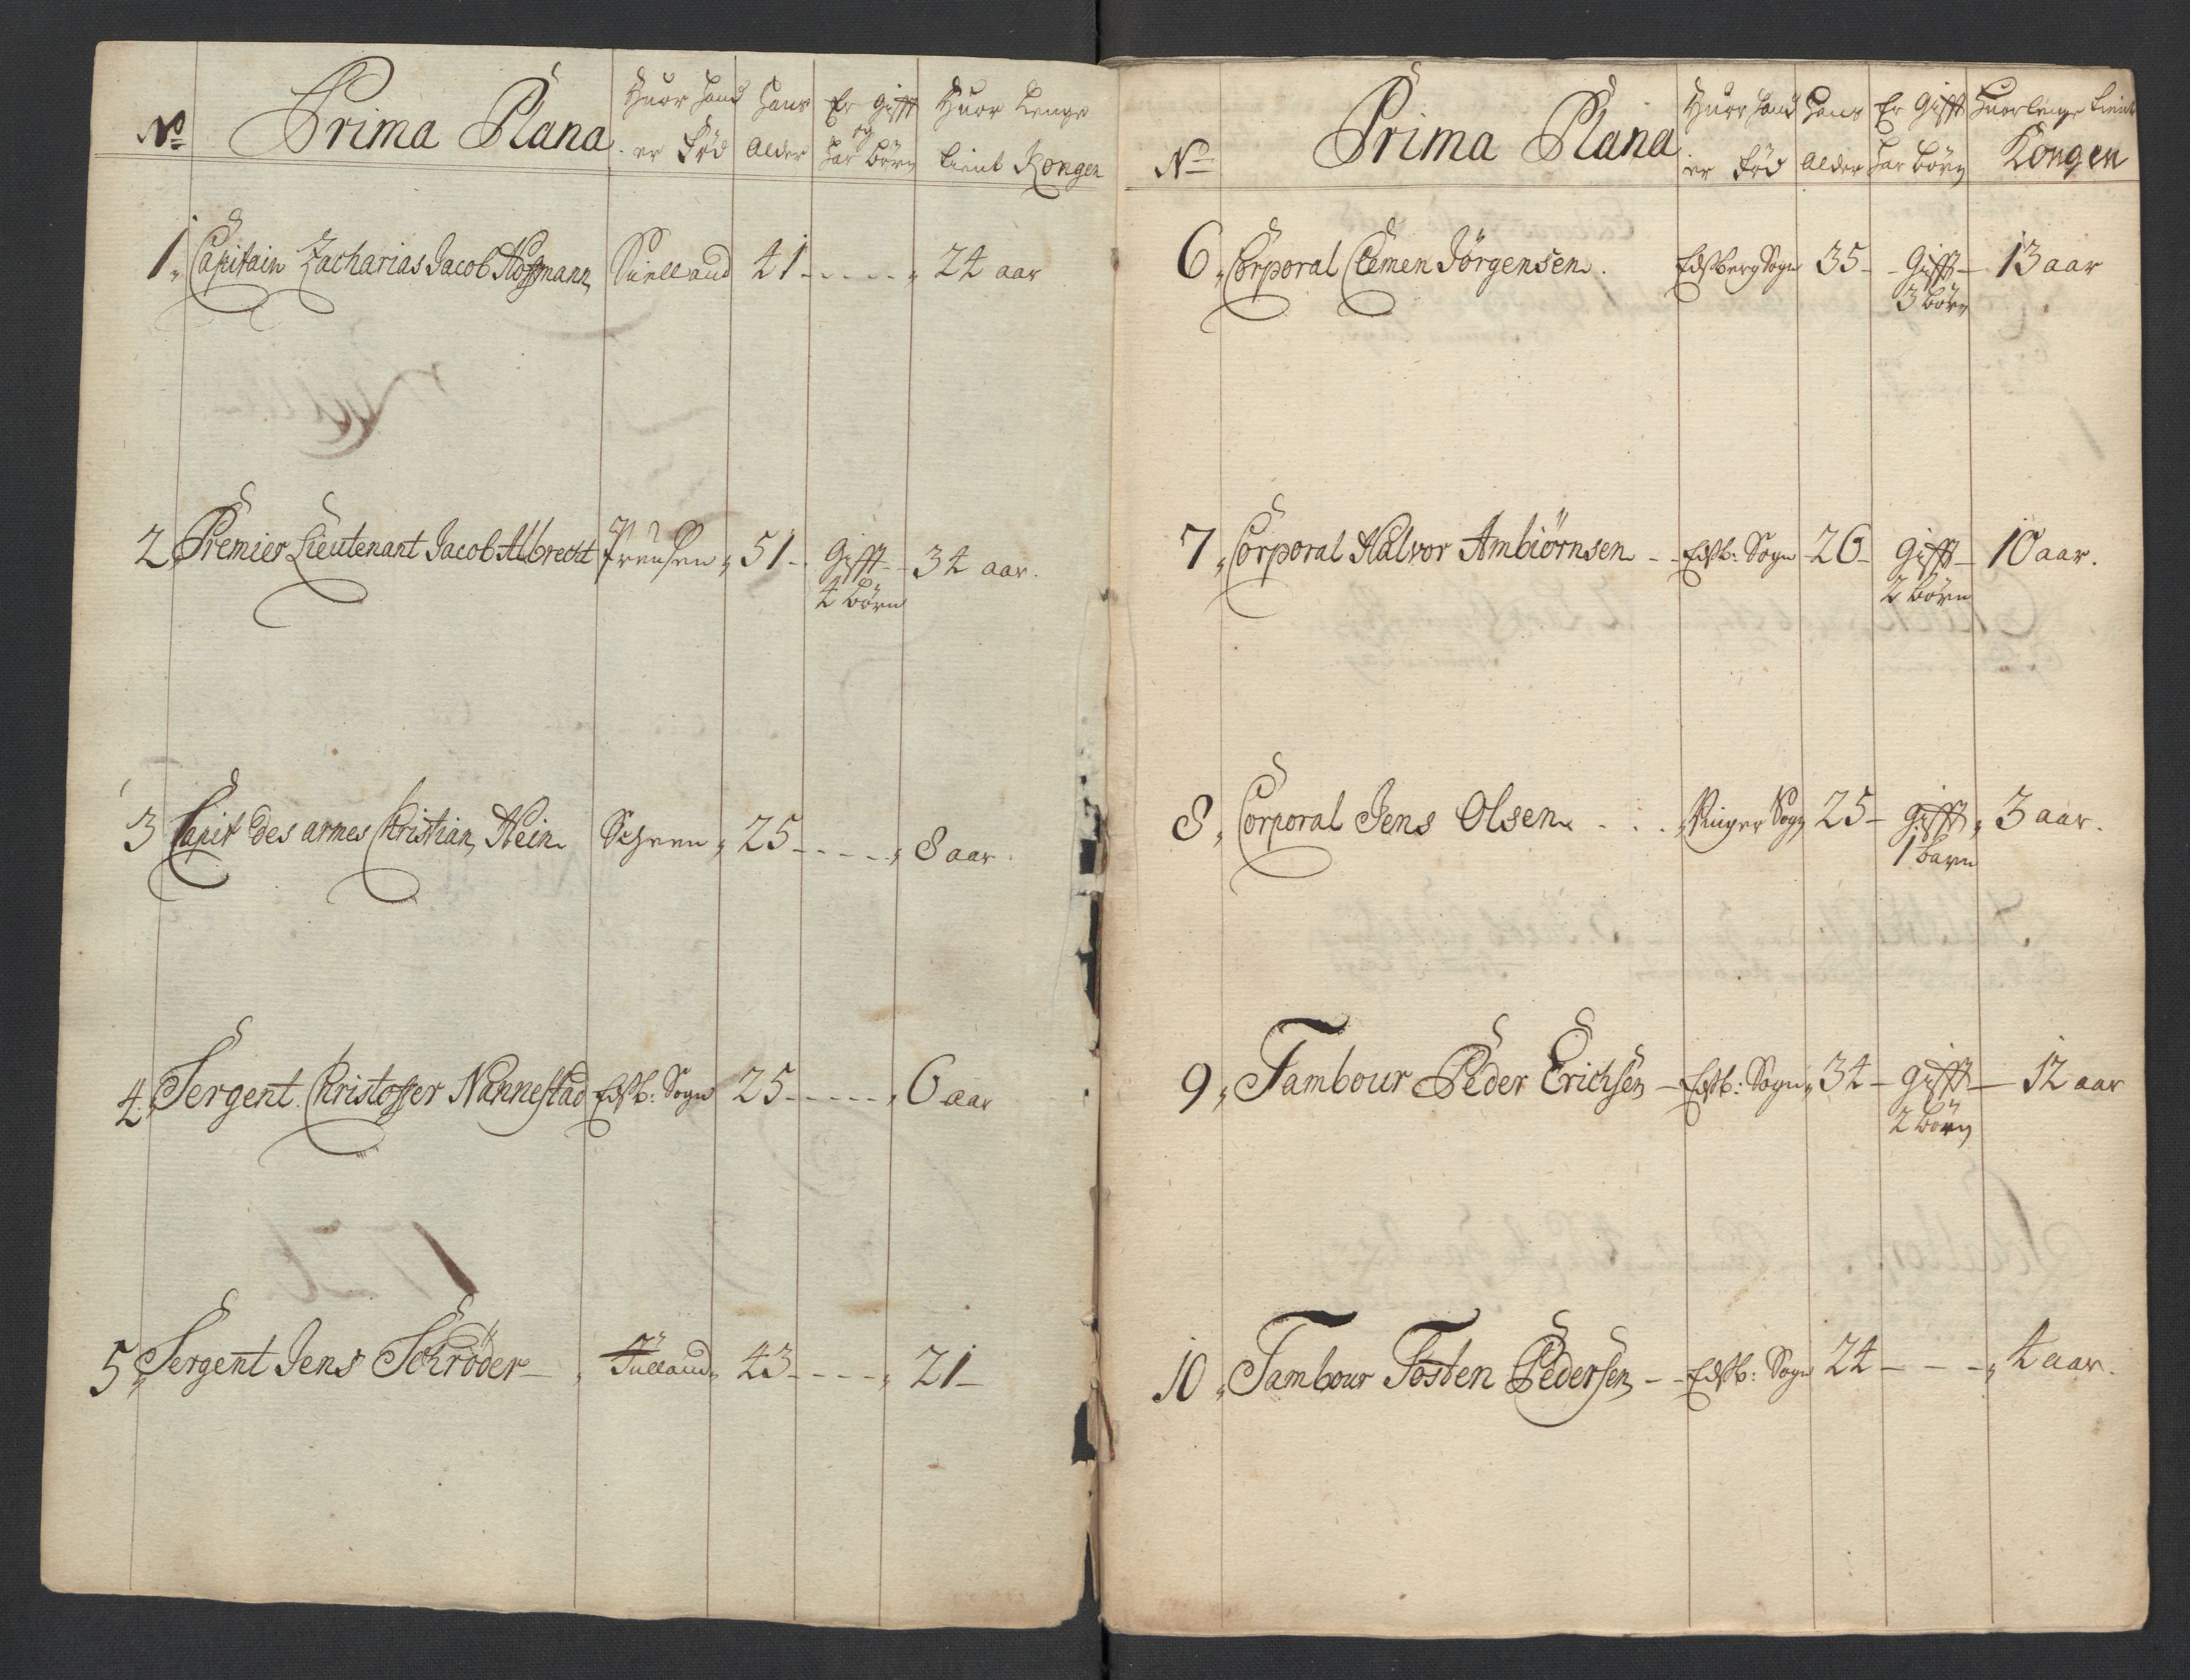 No Prima Plana Huor hand er Föd Hans Alder Er gifft og har börn Huor lenge tient Kongen
1 Capitain Zacharias Jacob Hoffmann Siælland 41 24 aar
2 Premier Lieutenant Jacob Albrecht Preusen 51 gifft 34 aar.
4 börn
3 Capit des armes Christian Hein Scheen 25 8 aar
4 Sergent Christoffer Nannestad Edsb: Sogn 25 6 aar
5 Sergent Jens Schröder Jülland 43 21
No Prima Plana Huor hand er föd Hans Alder Er gifft har börn Huor lenge tient Kongen
6 Corporal Clemen Jörgensen. Edsberg Sogn 35 gifft 13 aar
3 börn
7 Corporal Halvor Ambiörnsen Edsb: Sogn 26 gifft 10 aar.
2 börn
8 Corporal Jens Olsen Vinger Sogn 25 gifft 3 aar.
1 barn
9 Tambour Peder Erichsen Edsb: Sogn 34 gifft 12 aar
2 börn
10 Tambour Tosten Pedersen Edsb: Sogn 24 4 aar.